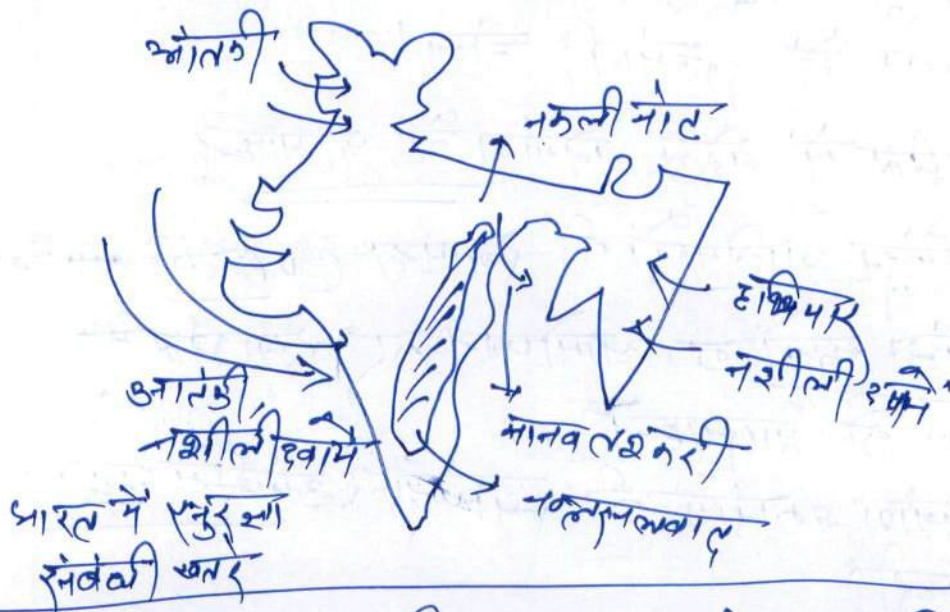 आंतकी
नकली नोट
हथियार
नशीली दवायें
आतंकी,
नशीली दवायें
मानव तस्करी
नक्सलवाद
भारत में सुरक्षा
संबंधी खतरे